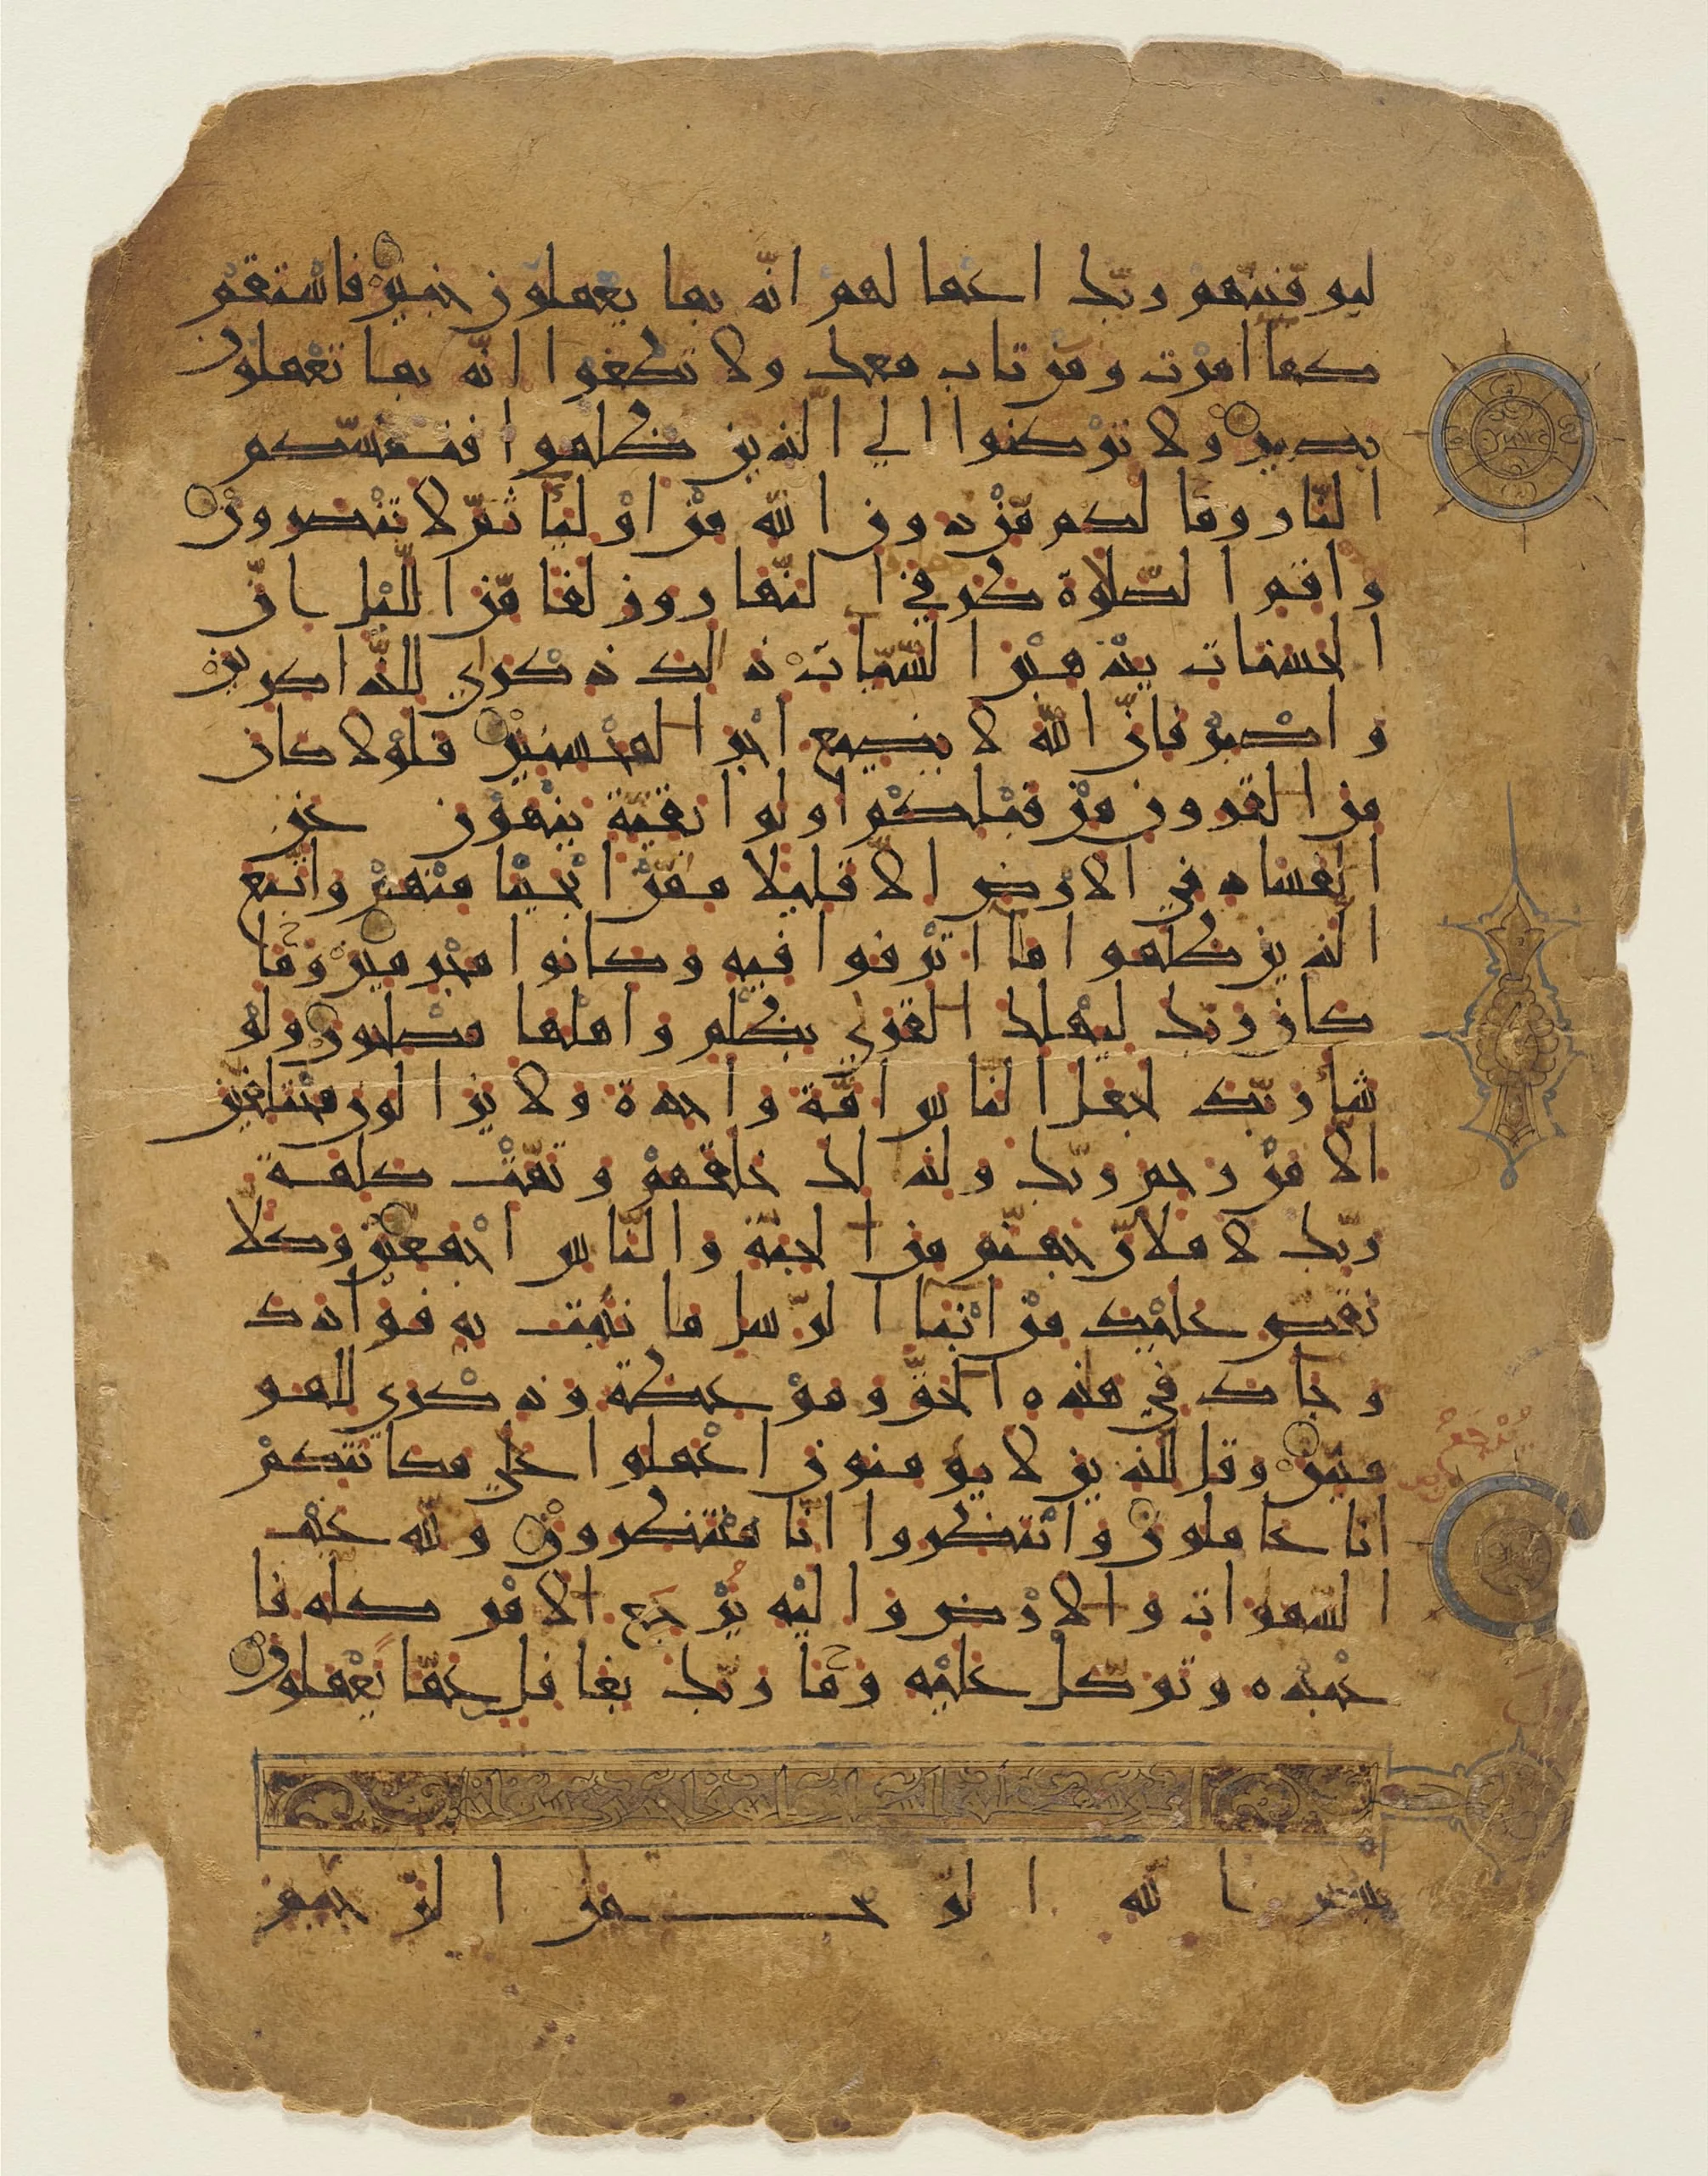 ليوفينهم ربك اعمالهم انه بما يعملون خبير فاستقم
كما امرت ومن تاب معك ولا تطغوا انه بما تعملون
بصير ولا تركنوا الى الذين ظلموا فتمسكم
النار وما لكم من دون الله من اوليا ثم لا تنصرون
واقم الصلاة طرفي النهار وزلفا من الليل ان
الحسنات يذهبن السيات ذلك ذكرى للذاكرين
واصبر فان الله لا يضيع اجر المحسنين فلولا كان
من القرون من قبلكم اولوا بقية ينهون عن
الفساد في الارض الا قليلا ممن انجينا منهم واتبع
الذين ظلموا ما اترفوا فيه وكانوا مجرمين وما
كان ربك ليهلك القرى بظلم واهلها مصلحون ولو
شا ربك لجعل الناس امة واحدة ولا يزالون مختلفين
الا من رحم ربك ولذلك خلقهم وتمت كلمة
ربك لاملان جهنم من الجنة والناس اجمعين وكلا
نقص عليك من انبا الرسل ما نثبت به فوادك
وجاك في هذه الحق وموعظة وذكرى للمو
منين وقل للذين لا يومنون اعملوا على مكانتكم
انا عاملون وانتظروا انا منتظرون ولله غيب
السموات والارض واليه يرجع الامر كله فا
عبده وتوكل عليه وما ربك بغافل عما يعملون
بسم الله الرحمن الرحيم